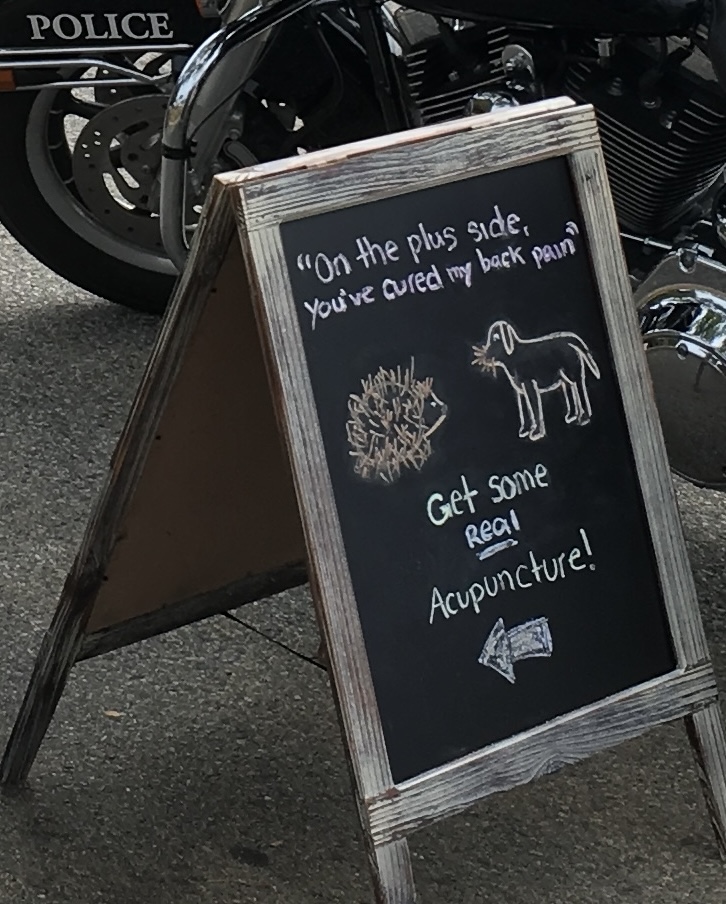 POLICE
"On the plus side,
you've cured my back pain"
Get some
Real
Acupuncture!